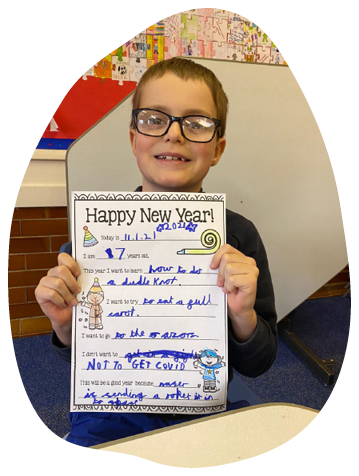 Happy New Year!
☆2021☆
Today is 11.1.21
I am 7 years old.
This year I want to learn how to do
a dudle knot.
I want to try to eat a full
carot.
I want to go to the
I don't want to
NOT TO GET COVID
This will be a good year because naser
is sending a roket it in
to space